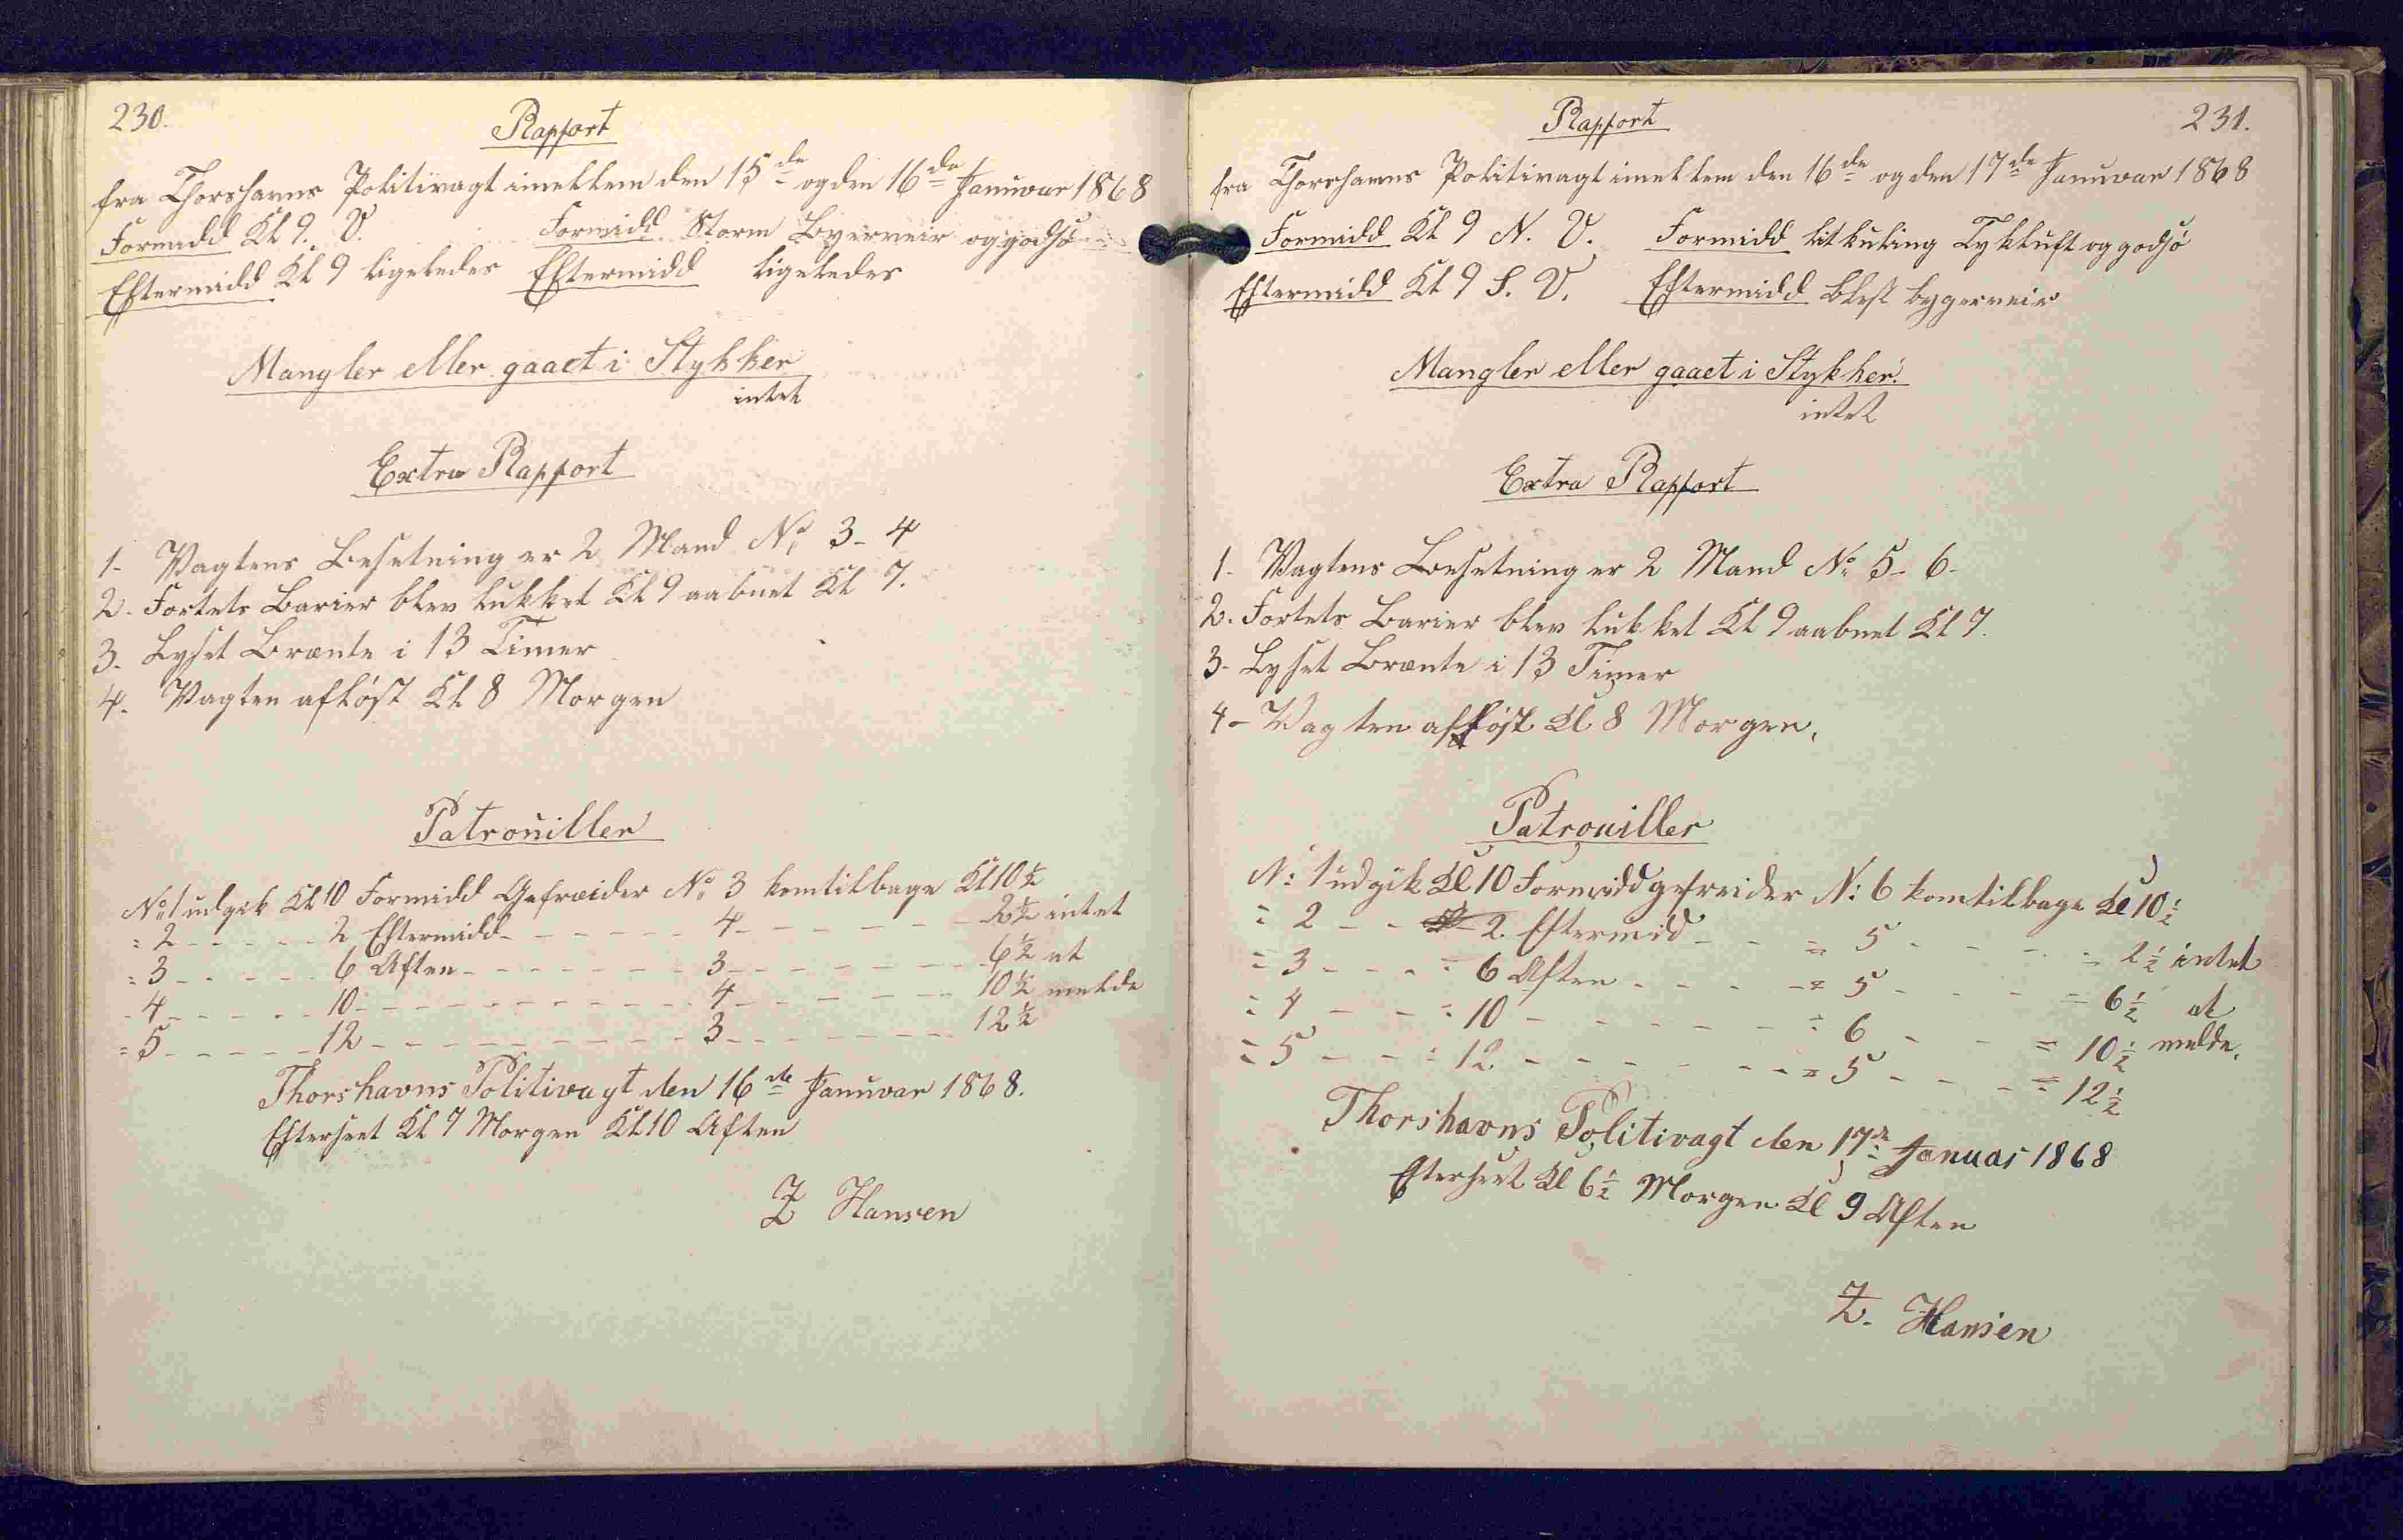 230.
Rapport
fra Thorshavns Politivagt imellem den 15de og den 16de Januvar 1868
Formidd Kl 9. V. Formidd Storm Byerveir og godsø
Eftermidd Kl 9 ligeledes Eftermidd ligeledes
Mangler eller gaaet i Stykker
intet
Extra Rapport
1. Vagtens Besetning er 2 Mand No 3-4
2. Fortets Barier blev lukket Kl 9 aabnet Kl 7.
3. Lyset Brænte i 13 Timer
4. Vagten afløst Kl 8 Morgen
Patrouiller
No 1 udgik Kl 10 Formidd Gefreider No 3 komtilbage Kl 10½
= 2 - - - - - 2 Eftermidd - - - - - - 4 - - - - - - 2½ intet
= 3 - - - - - 6 Aften - - - - - - - 3 - - - - - - - 6½ at
- 4 - - - - - 10 - - - - - - - - - - 4 - - - - - - - 10½ melde
= 5 - - - - - 12 - - - - - - - - - - 3 - - - - - - - 12½
Thorshavns Politivagt den 16de Januvar 1868.
Efterseet Kl 7 Morgen Kl 10 Aften
Z Hansen
231.
Rapport
fra Thorshavns Politivagt imellem den 16de og den 17de Januvar 1868
Formidd Kl 9 N. V. Formidd litkuling Tykluft og godsø
Eftermidd Kl 9 S. V. Eftermidd blest bygerveir
Mangler eller gaaet i Stykker.
intet
Extra Rapport
1. Vagtens Besetning er 2 Mand No 5-6-
2. Fortets Barier blev lukket Kl 9 aabnet Kl 7.
3- Lyset Brænte i 13 Timer
4- Vagten afløst Kl 8 Morgen.
Patrouiller
N: 1 udgik Kl 10 Formidd gefreider N: 6 komtilbage Kl 10½
= 2 - - - 2. Eftermid - - = 5 - - - = 2½ intet
= 3 - - - = 6 Aften - - - = 5 - - - = 6½ at
= 4 - - = 10 - - - - - = 6 - - = 10½ melde.
= 5 - - = 12 - - - - - = 5 - - - = 12½
Thorshavns Politivagt den 17de Januar 1868
Efterseet Kl 6½ Morgen Kl 9 Aften
Z. Hansen